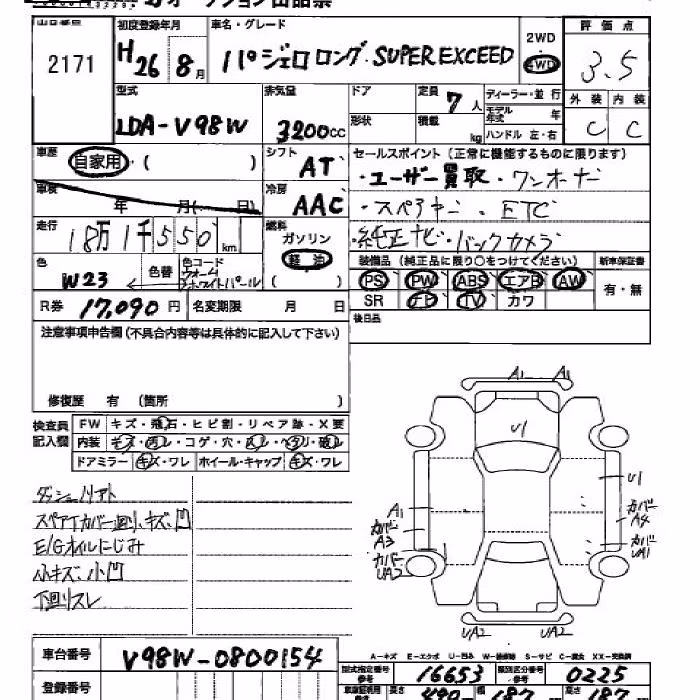 オークション出品票
出品番号 初度登録年月 車名・グレード 2WD 評価点
2171 H26 8月 パジェロ ロング. SUPER EXCEED 4WD 3.5
型式 排気量 ドア 定員 7人 ディーラー・並行 外装 内装
LDA-V98W 3200cc 形状 積載 kg モデル年式 年 C C
ハンドル 左・右
車歴 自家用・( ) シフト AT セールスポイント (正常に機能するものに限ります)
・ユーザー買取・ワンオーナー
車検 年 月( 日) 冷房 AAC ・スペアキー . ETC
走行 18万1千550km 燃料 ガソリン 軽油 ・純正ナビ・バックカメラ
色 W23 色替 色コード ウォームホワイトパール 装備品 (純正品に限り○をつけてください) 新車保証書
PS PW ABS エアB AW 有・無
R券 17,090円 名変期限 月 日) SR ナビ TV カワ
注意事項申告欄 (不具合内容等は具体的に記入して下さい) 後日品
修復歴 有 (箇所 )
検査員記入欄 FW キズ・飛石・ヒビ割・リペア跡・X要
内装 キズ・汚レ・コゲ・穴・スレ・ヘタリ・破レ
ドアミラー キズ・ワレ ホイール・キャップ キズ・ワレ
A1 A1
U1
U1
A1
カバー A3
カバー UA2
カバー A4
カバー UA1
UA2 UA2
ダッシュノリアト
スペアTカバー廻リ、キズ、凹
E/Gオイルにじみ
小キズ、小凹
下廻リスレ
A-キズ E-エクボ U-凹み W-補修跡 S-サビ C-腐食 XX-交換済
車台番号 V98W-0800154 型式指定番号 16653 類別区分番号 0225
登録番号 長さ 490 幅 187 高さ 187